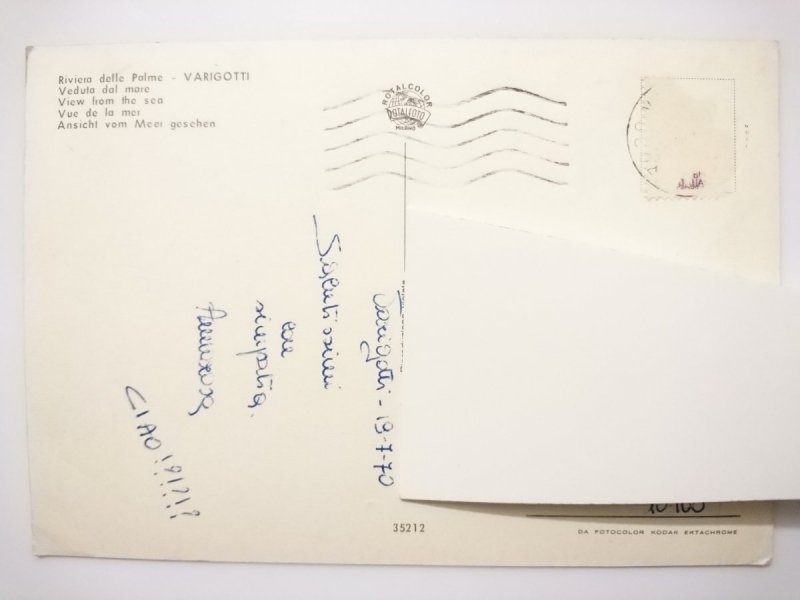 Riviera delle Palme - VARIGOTTI
Veduta dal mare
View from the sea
Vue de la mer
Ansicht vom Meer gesehen
ROTALCOLOR
ROTALFOTO
MILANO
Varigotti - 19-7-70
Salutissimi
con
simpatia.
CIAO!?!?!?
35212
DA FOTOCOLOR KODAK EKTACHROME